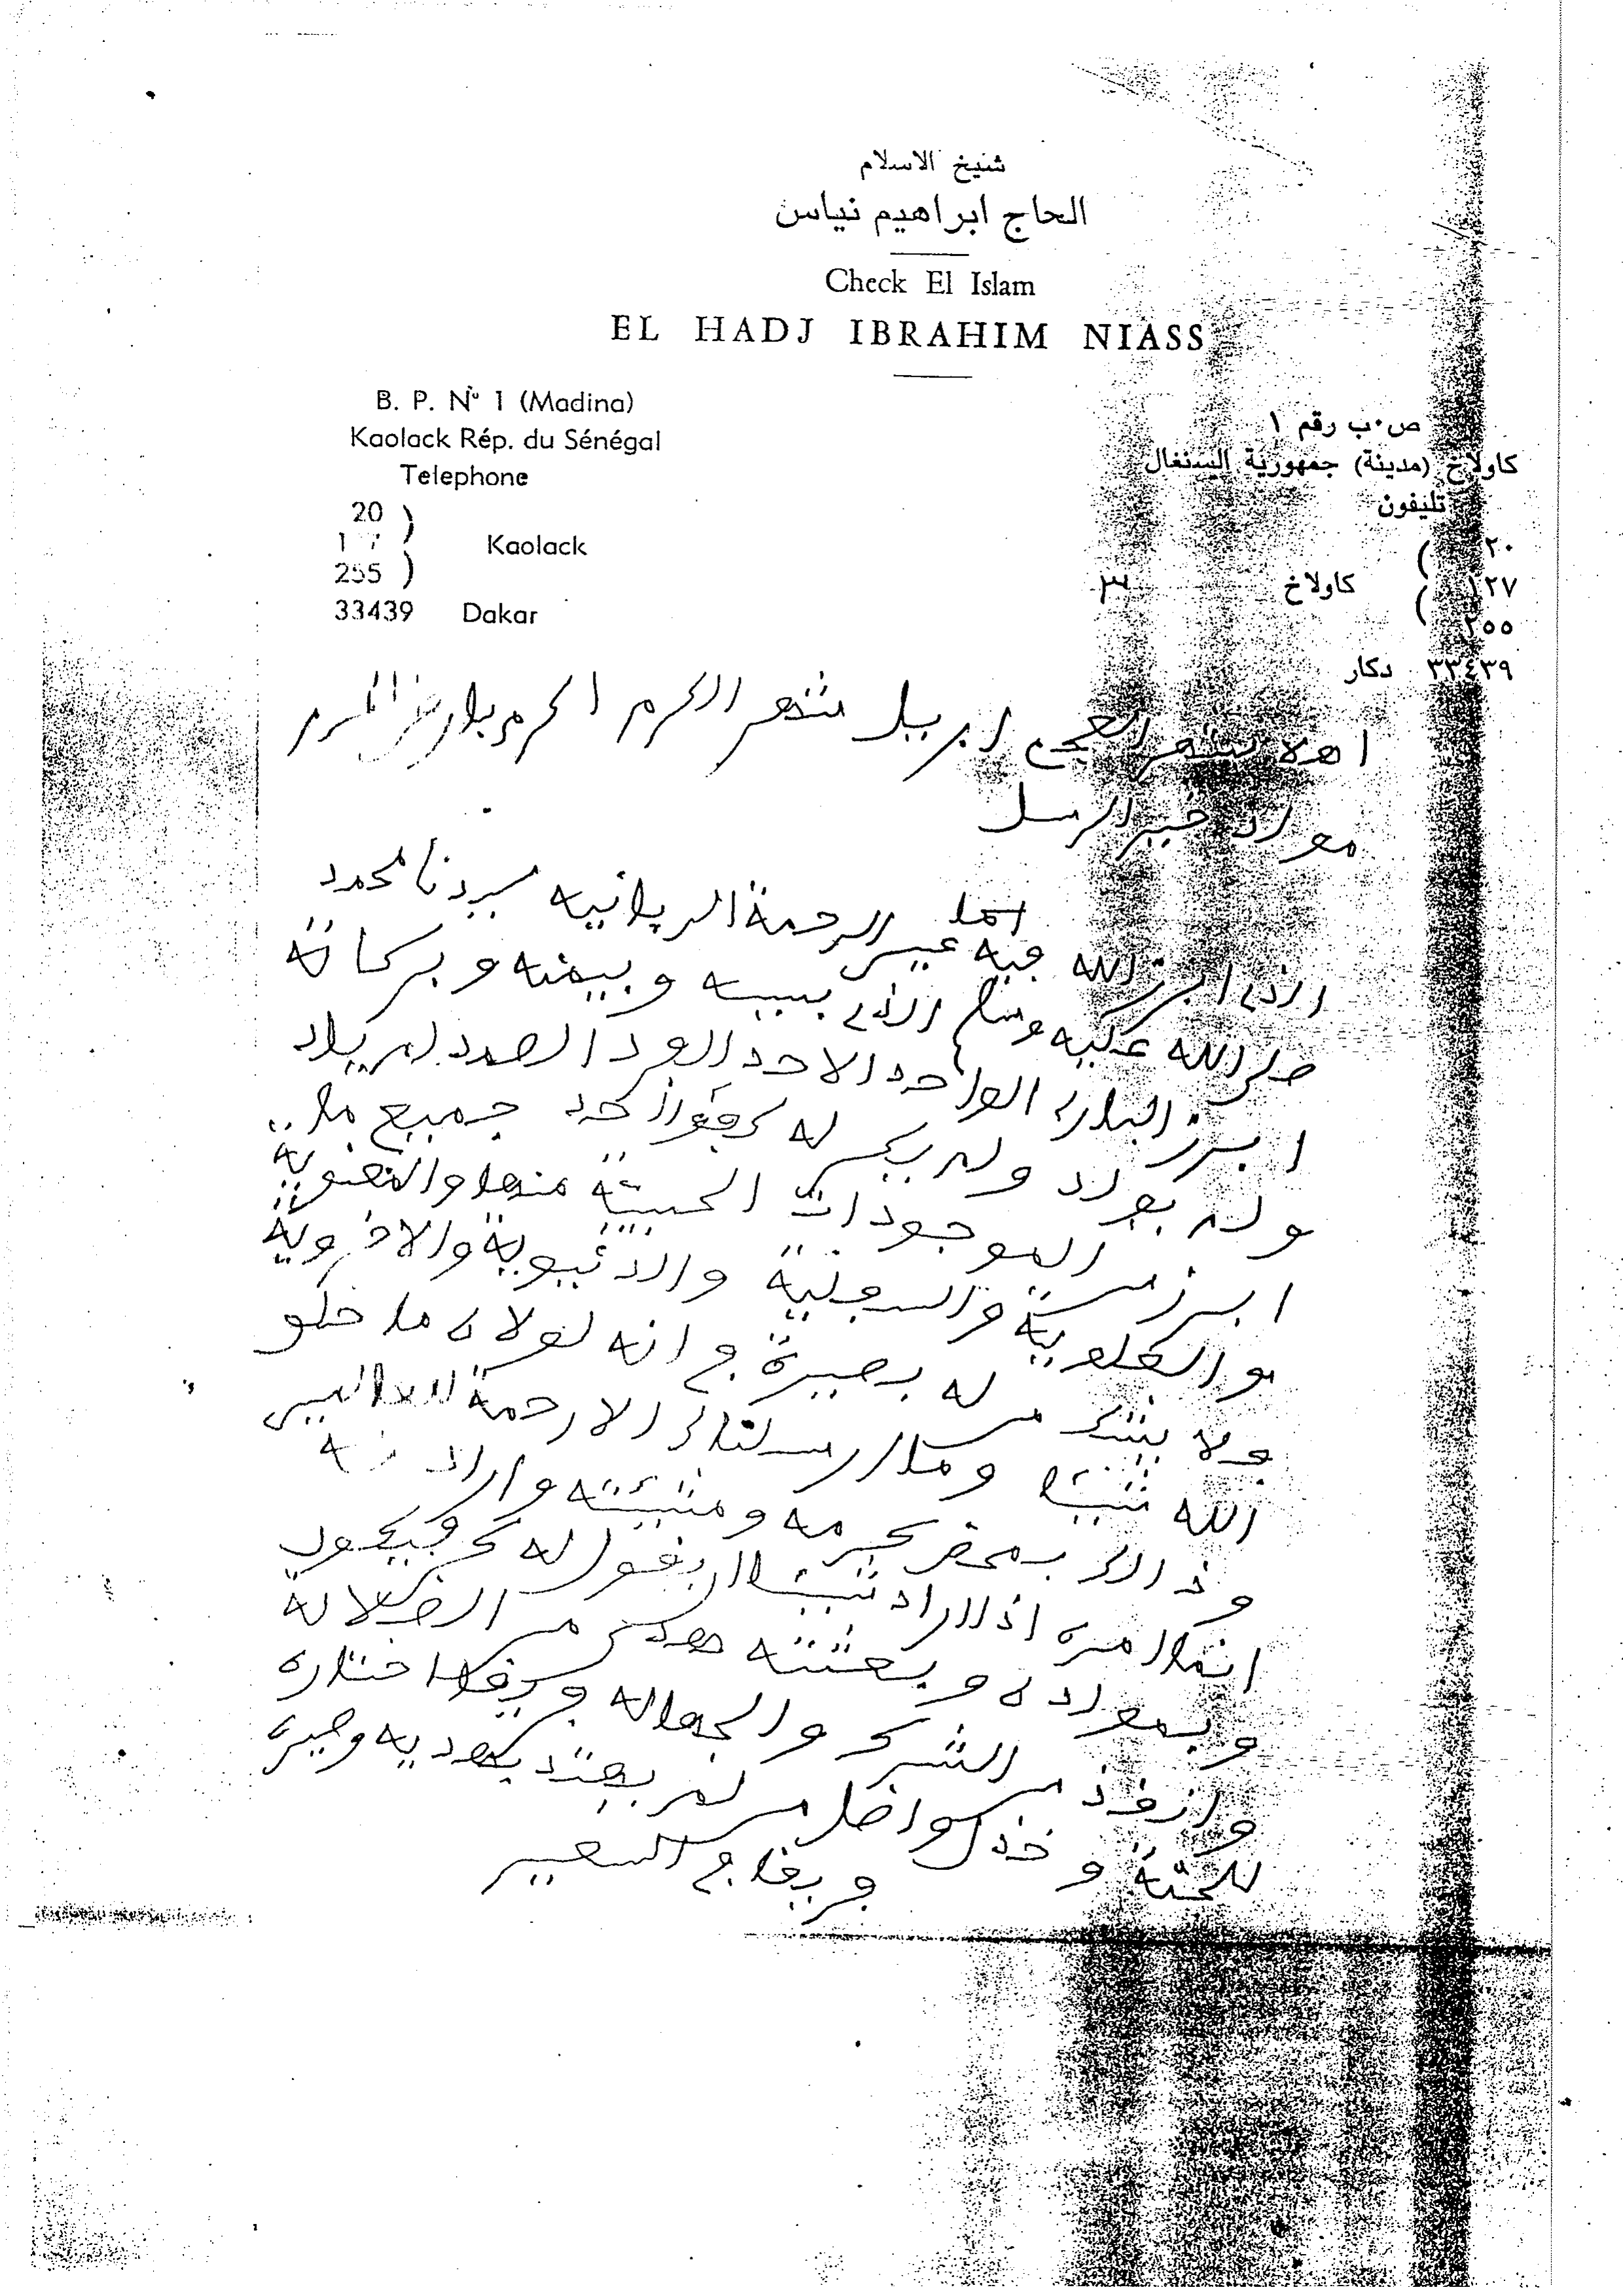 شيخ الاسلام
الحاج ابراهيم نياس
Check El Islam
EL HADJ IBRAHIM NIASS
B. P. N° 1 (Madina)
Kaolack Rép. du Sénégal
Telephone
20
255
Kaolack
33439 Dakar
ص.ب رقم ١
كاولاخ (مدينة) جمهورية السنغال
تليفون
٢٠
١٢٧
٢٥٥
كاولاخ
٣٣٤٣٩ دكار
٣
اهلا ابريل شهر الكرم
مولد خير الرسل
الرحمة الربانيه سيدنا محمد
الذى ابرز الله فيه عين
صلى الله عليه وسلم الذى بسببه وبيمنه وبركاته
ابرز البارى الواحد الاحد الفرد الصمد لم يلد
ولم يولد ولم يكن له كفؤا احد جميع ما
ابرز من الموجودات الحسية منها والمعنوية
والعلوية والسفلية والدنيوية والاخروية
فلا يشك من له بصيرة في انه لولاه ما خلق
الله شيئا وما ارسلناك الا رحمة للعالمين
وذالك بمحض كرمه ومشيئته وارادته
انما امره اذا اراد شيئا ان يقول له كن فيكون
وبمولده وبعثته هدى من الضلالة
وانقذ من الشرك والجهالة فريقا اختاره
للجنة وخذل واضل من لم يهتد بهديه وصيره
فريقا في السعير